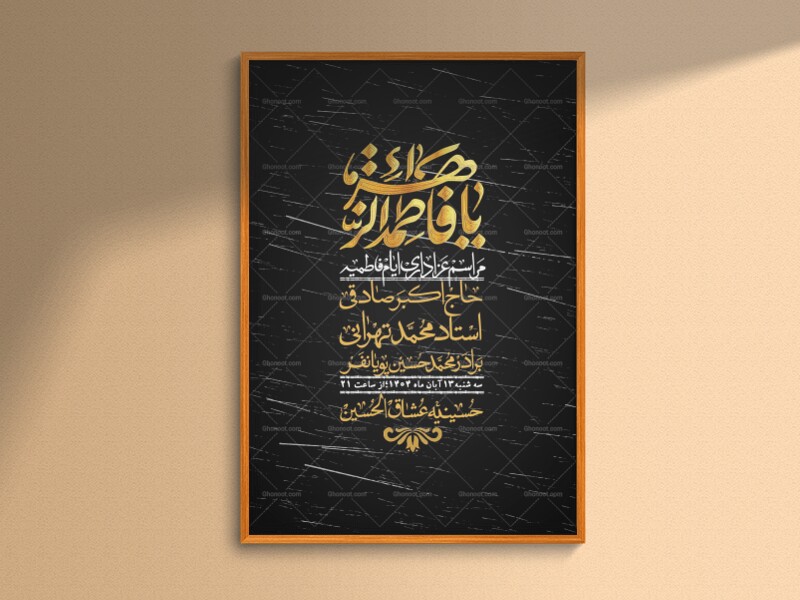 یا فاطمة الزهراء
مراسم عزاداری ایام فاطمیه
حاج اکبر صادقی
استاد محمد تهرانی
برادر محمد حسین پویانفر
سه شنبه ۱۳ آبان ماه ۱۴۰۴؛ از ساعت ۲۱
حسینیه عشاق الحسین
Ghonoot.com